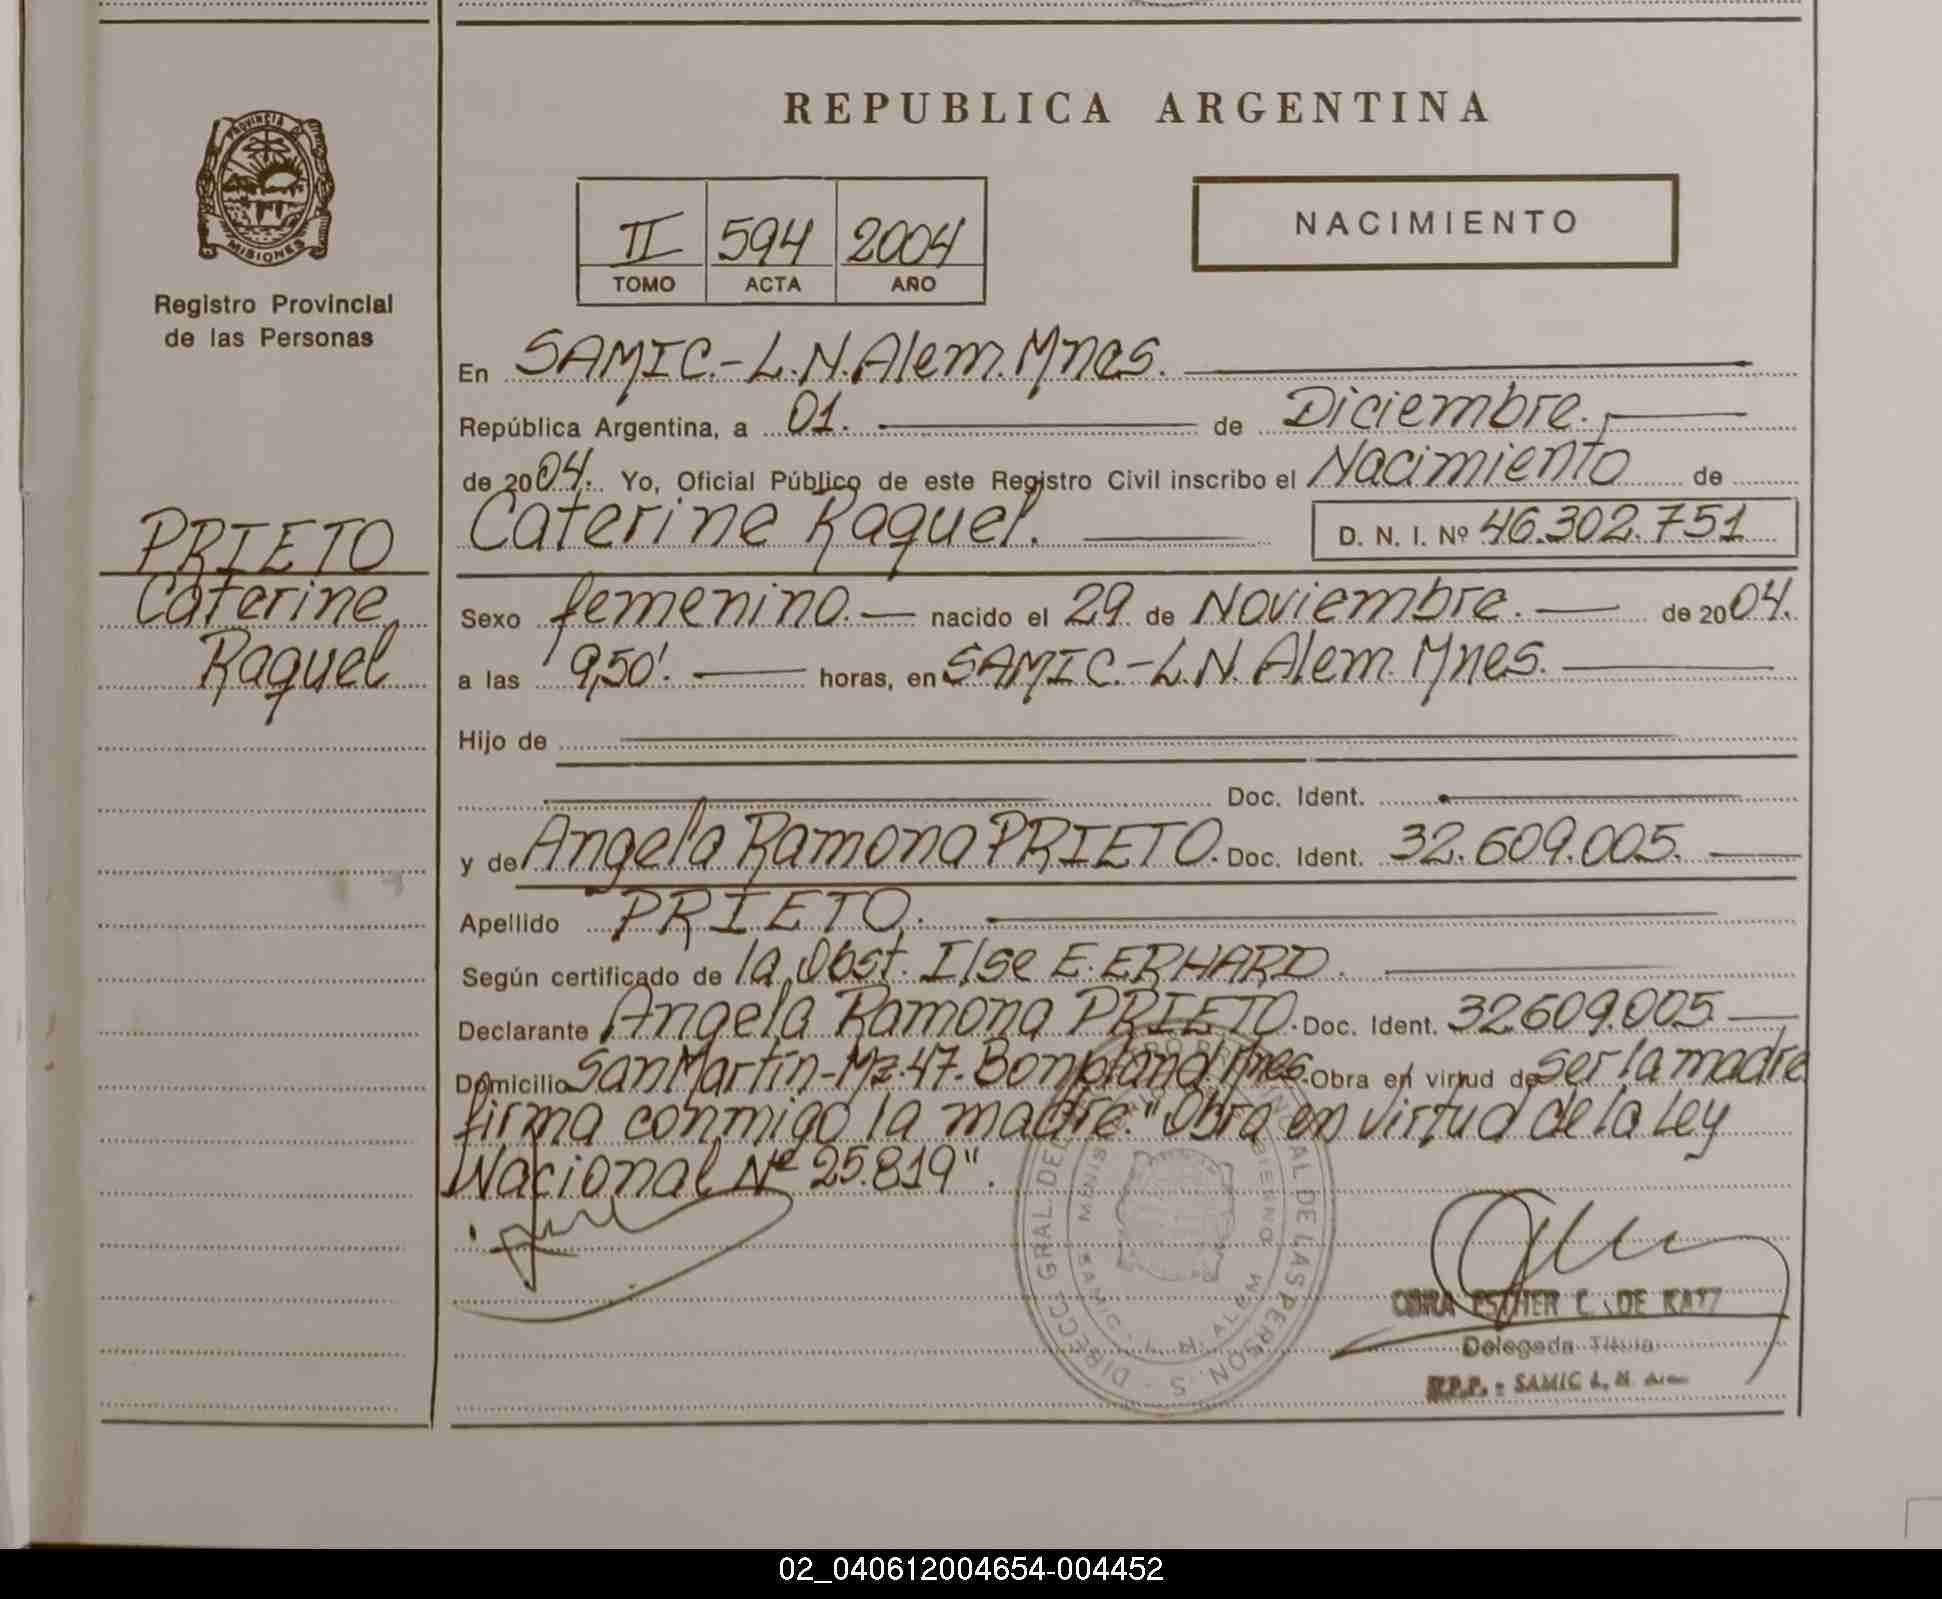 REPUBLICA ARGENTINA
PROVINCIA DE
MISIONES
Registro Provincial
de las Personas
II 594 2004
TOMO ACTA AÑO
NACIMIENTO
En SAMIC.-L.N.Alem.Mnes.
República Argentina, a 01. de Diciembre.
de 2004. Yo, Oficial Público de este Registro Civil inscribo el Nacimiento de
Caterine Raquel. D. N. I. Nº 46.302.751
PRIETO
Caterine
Raquel
Sexo femenino. nacido el 29 de Noviembre. de 2004.
a las 9,50'. horas, en SAMIC.-L.N. Alem. Mnes.
Hijo de
Doc. Ident.
y de Angela Ramona PRIETO. Doc. Ident. 32.609.005.
Apellido PRIETO.
Según certificado de la Obst. Ilse E. ERHARD.
Declarante Angela Ramona PRIETO. Doc. Ident. 32.609.005
Domicilio San Martín-Mz.47. Bonpland Mnes. Obra en virtud de ser la madre
firma conmigo la madre. "Obra en virtud de la Ley
Nacional Nº 25.819".
DIRECC. GRAL. DEL REGISTRO PROVINCIAL DE LAS PERSON. S
SAMIC - L. N. ALEM
ESTHER C. DE KATZ
Delegada Titular
R.P.P. - SAMIC L. N. Alem
02_040612004654-004452